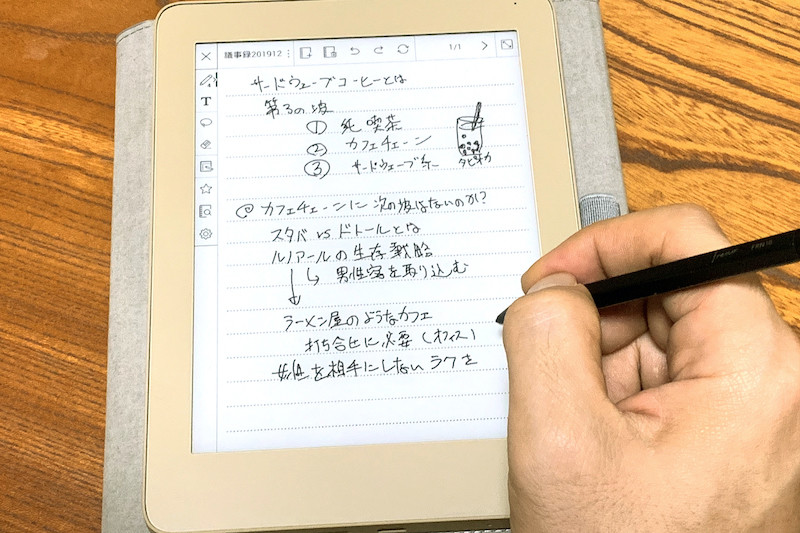 議事録201912
1/1
T
サードウェーブコーヒーとは
第3の波
① 純喫茶
② カフェチェーン
③ サードウェーブ系
タピオカ
@ カフェチェーンに次の波はないのか?
スタバ vs ドトールとは
ルノアールの生存戦略
↳ 男性客を取り込む
ラーメン屋のようなカフェ
打ち合せに必要(オフィス)
女性を相手にしないラクさ